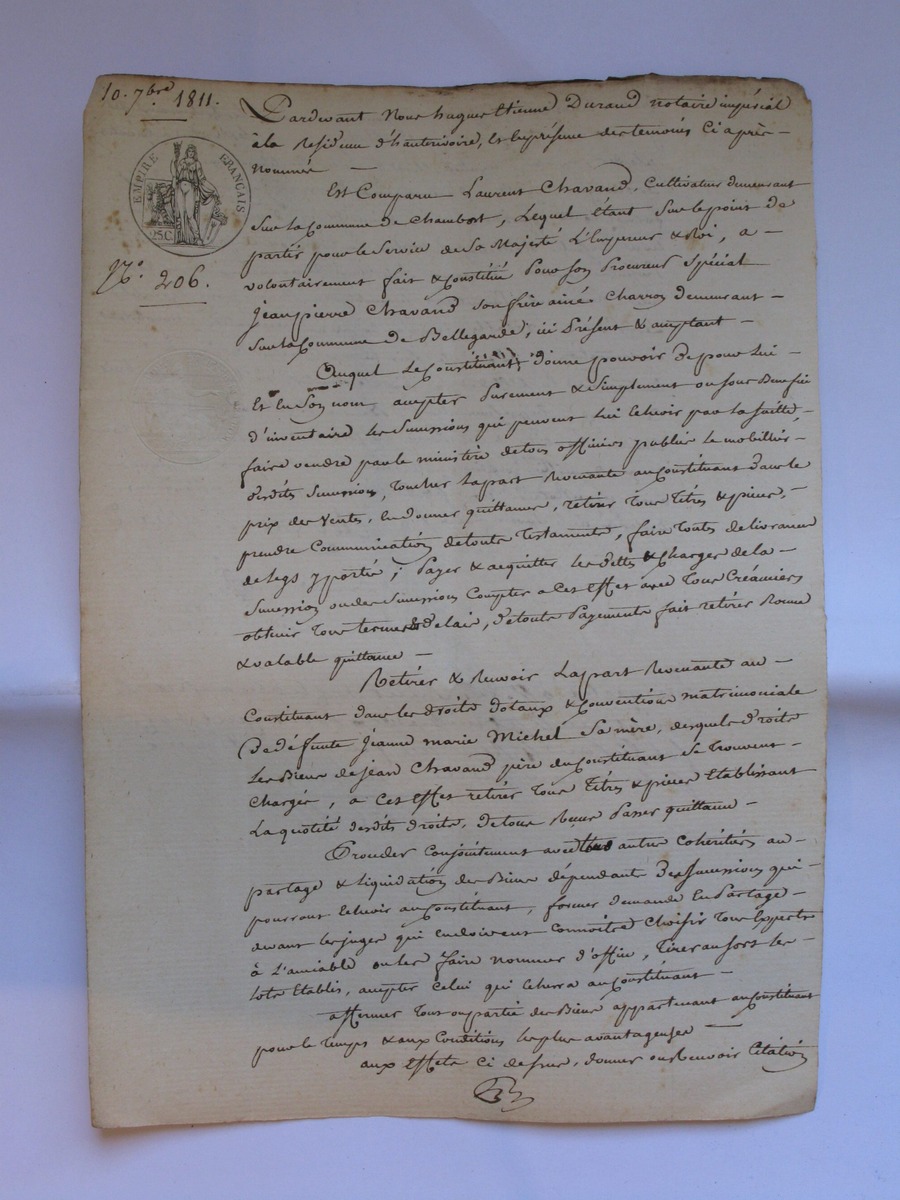 10. 7bre 1811.
EMPIRE FRANÇAIS
25 C.
N.° 206.
Pardevant Nous hugues Etienne Durand notaire impérial
à la Residence d'hauterivoire, et en présence des temoins ci après
nommés
Est Comparu Laurent Chavand, Cultivateur demeurant
sur la Commune de Chambost, Lequel étant sur le point de
partir pour le Service de Sa Majesté L'Empereur & Roi, a
volontairement fait & constitué pour son Procureur spécial
Jean pierre Chavand son frère ainé Charron demeurant
sur la Commune de Bellegarde, ici Présent & acceptant
Auquel le Constituant donne pouvoir de pour Lui
Et En Son nom accepter Purement & Simplement ou sous Benefice
d'inventaire les Successions qui peuvent lui Echeoir par la suitte,
faire vendre par le ministère de tous officiers publics le mobillier
desdits Successions, Toucher la part Revenante au Constituant dans le
prix des Ventes, En donner quittances, retirer Tous Titres & pieces,
prendre Communication de touts Testaments, faire Touts delivrance
de legs y portés; Payer & acquitter les dettes & Charges de la
Succession ou des Successions Compter a Cet Effet avec Tous Créanciers
obtenir Tous termes & delais, de touts Payements fait retirer Bonne
& valable quittance
Retirer & Recevoir La part Revenante au
Constituant dans les droits dotaux & Conventions matrimoniale
De défunte Jeanne marie Michel Sa mère, desquels droits
Les Biens de Jean Chavand père du Constituant Se Trouvent
Chargés, a Cet Effet retirer Tous Titres & pieces Etablissant
La quotité desdits droits, de tous Recus Passer quittance
Proceder Conjointement avec les autres Cohéritiers au
partage & liquidation des Biens dépendant des Successions qui
pourront Echeoir au Constituant, former demande En Partage
devant les juges qui En doivent Connoitre Choisir Tous Experts
à L'amiable ou les faire nommer d'office, Tirer au sort les
lots Etablis, accepter Celui qui Echerra au Constituant
affermer Tous ou partie des Biens appartenant au Constituant
pour le Temps & aux Conditions les plus avantageuses
aux Effets Ci dessus, donner ou Recevoir Citation